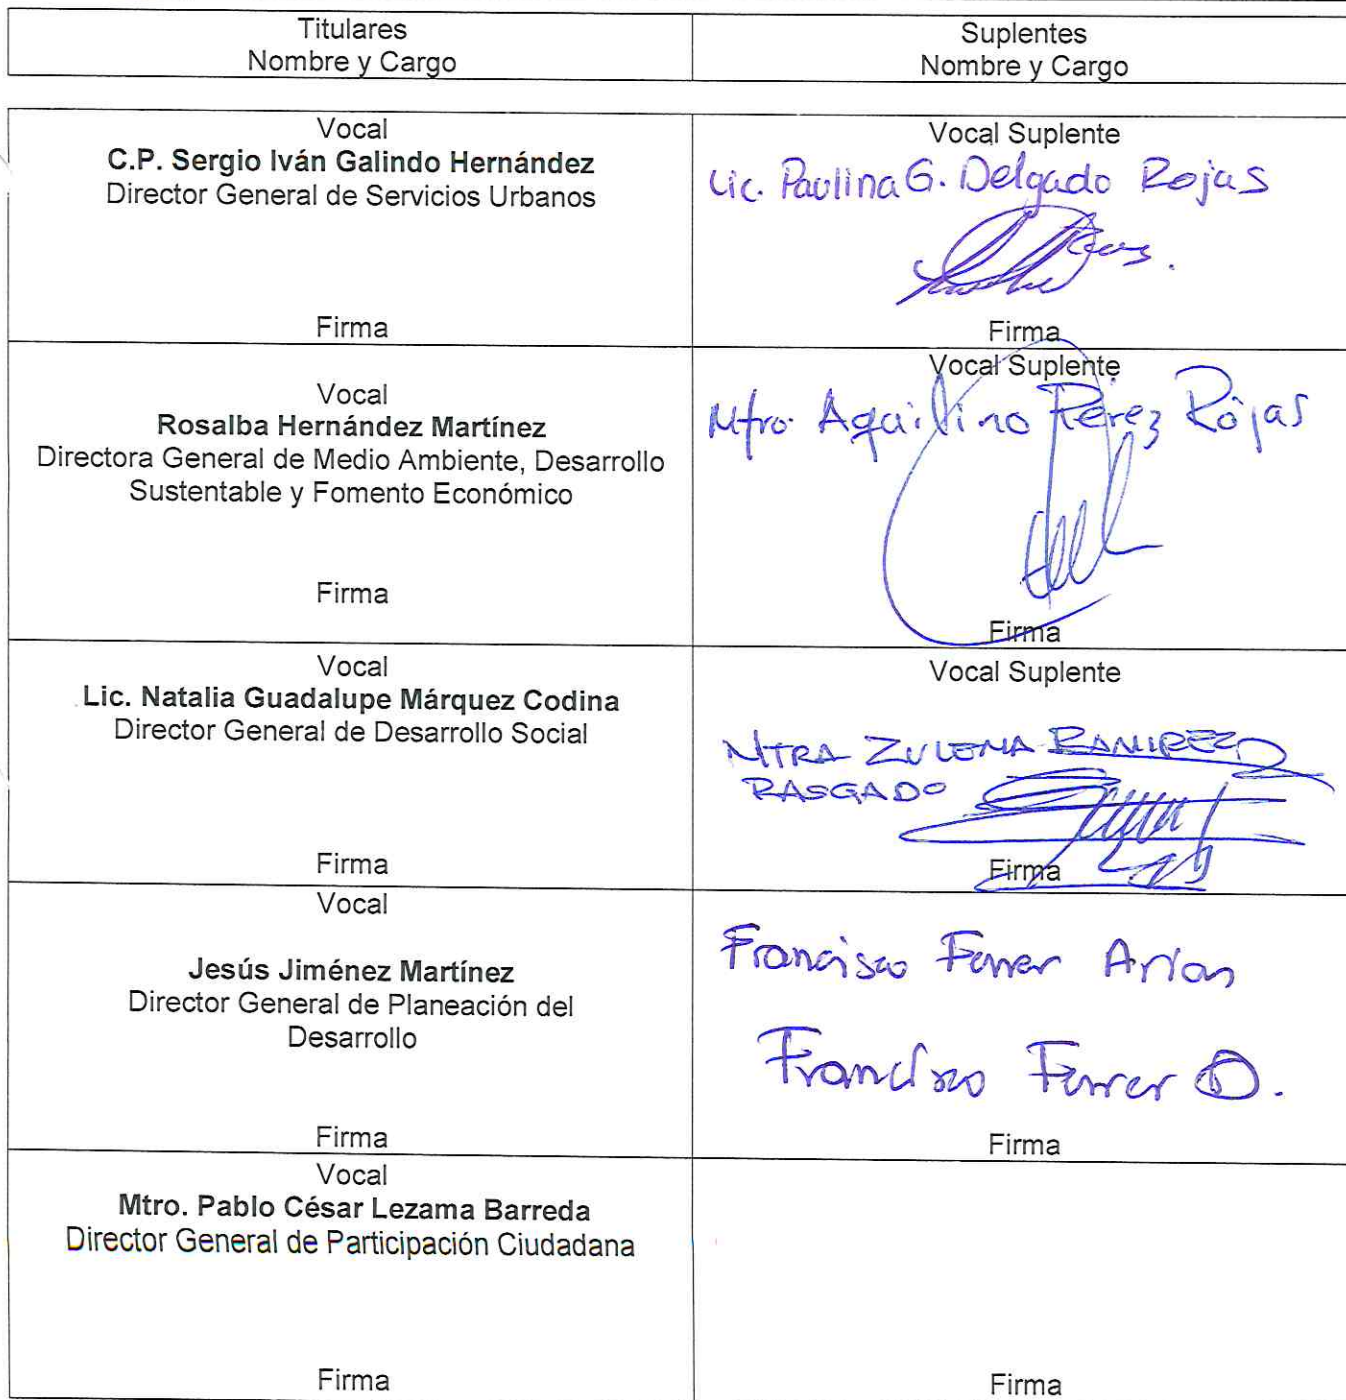 Titulares
Nombre y Cargo
Suplentes
Nombre y Cargo
Vocal
C.P. Sergio Iván Galindo Hernández
Director General de Servicios Urbanos
Firma
Vocal Suplente
Lic. Paulina G. Delgado Rojas
Firma
Vocal
Rosalba Hernández Martínez
Directora General de Medio Ambiente, Desarrollo
Sustentable y Fomento Económico
Firma
Vocal Suplente
Mtro. Aquilino Pérez Rojas
Firma
Vocal
Lic. Natalia Guadalupe Márquez Codina
Director General de Desarrollo Social
Firma
Vocal Suplente
MTRA ZULEMA RAMIREZ
RASGADO
Firma
Vocal
Jesús Jiménez Martínez
Director General de Planeación del
Desarrollo
Firma
Francisco Ferrer Arias
Francisco Ferrer
Firma
Vocal
Mtro. Pablo César Lezama Barreda
Director General de Participación Ciudadana
Firma
Firma